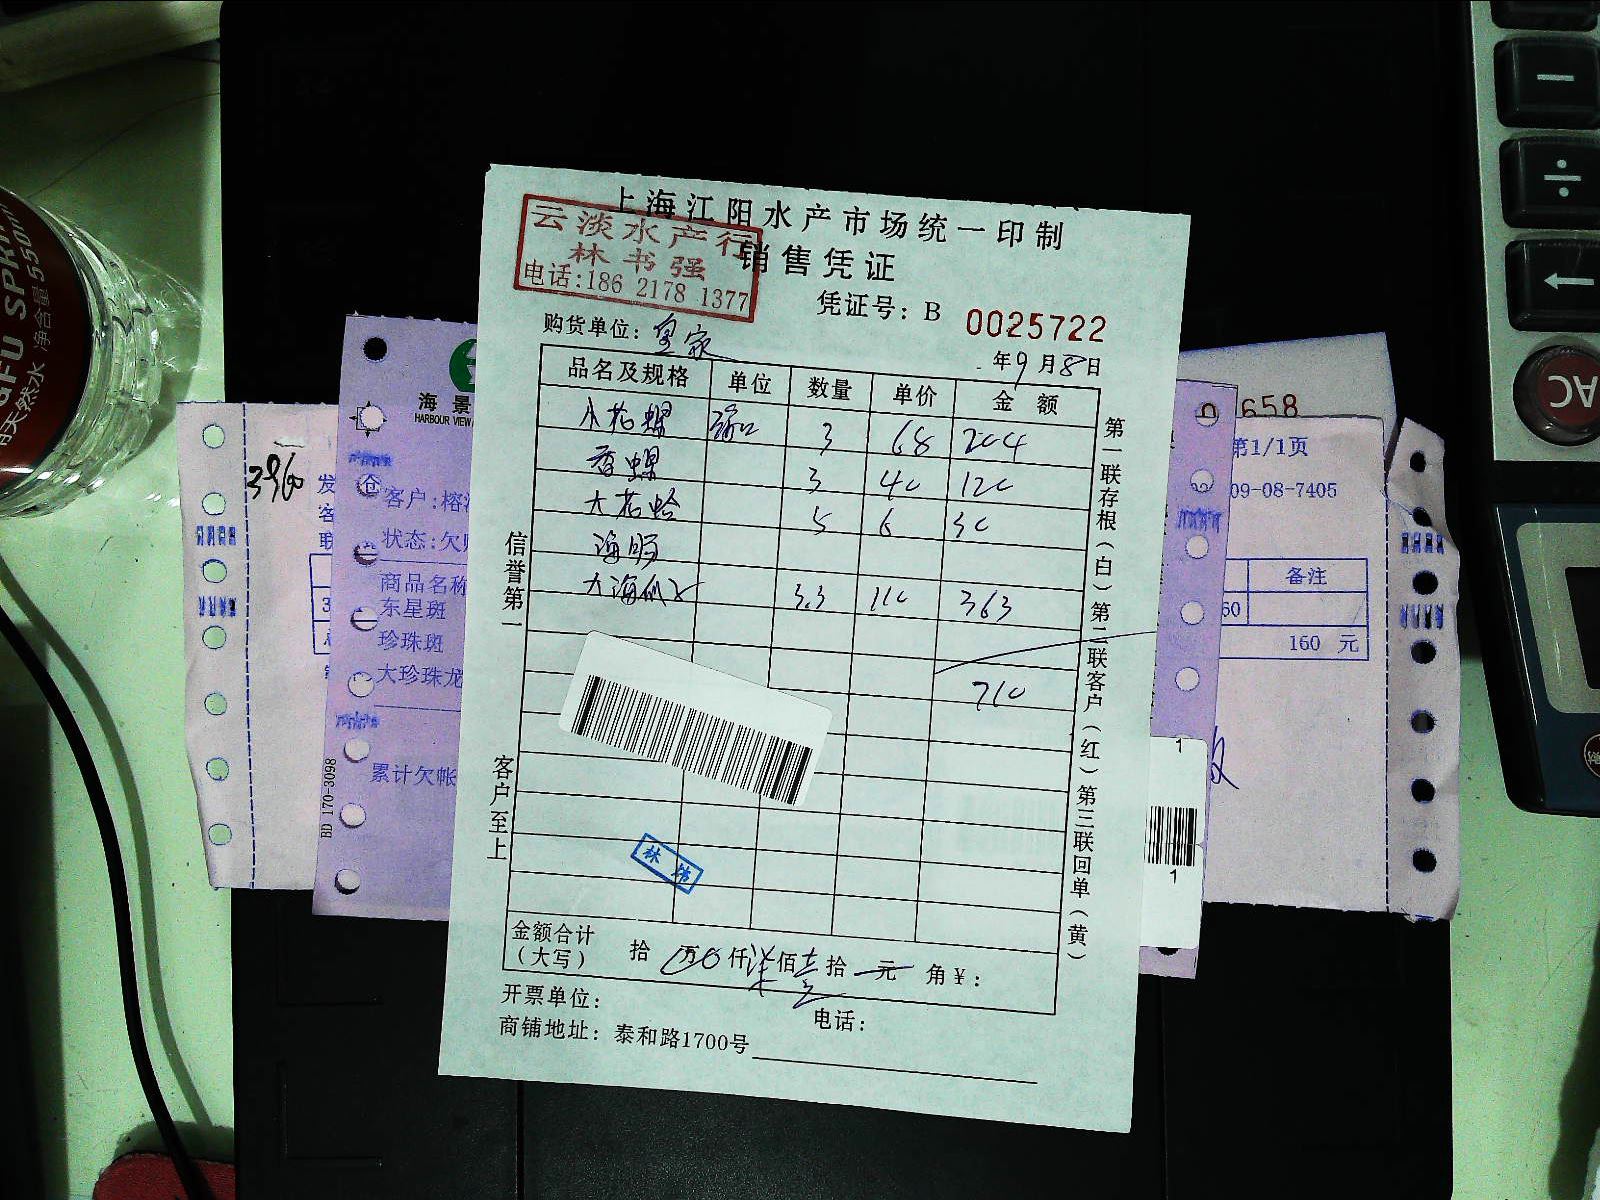 上海江阳水产市场统一印制
销售凭证
云淡水产行
林书强
电话:186 2178 1377
凭证号：B 0025722
购货单位：皇家
年9月8日
品名及规格 单位 数量 单价 金额
小花螺 3 68 204
香螺 3 40 120
大花蛤 5 6 30
海肠
3.3 110 363
710
信誉第一 客户至上
第一联存根（白）第二联客户（红）第三联回单（黄）
金额合计（大写） 拾 万 仟柒佰壹拾 元 角￥：
开票单位：
电话：
商铺地址：泰和路1700号
3960
发
客
联
海景
HARBOUR VIEW
仓
客户:榕
状态:欠
商品名称
东星斑
珍珠斑
大珍珠龙
累计欠帐
BD 170-3098
658
第1/1页
09-08-7405
备注
60
160 元
1
1
SPRI
天然水 净含量550ml
AC